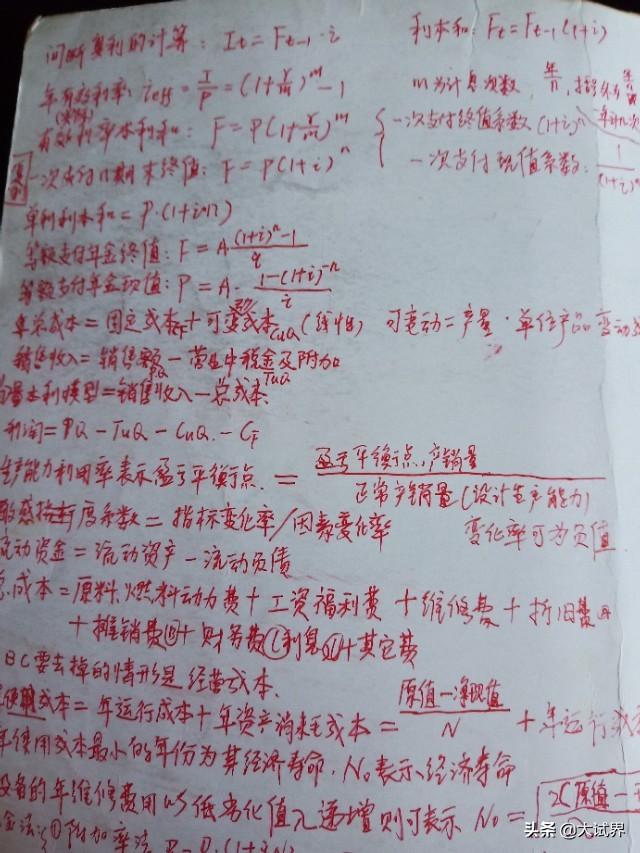 间断复利的计算: It = Ft-1 · i 利本和: Ft = Ft-1(1+i)
年有效利率: ieff = I/P = (1+r/m)^m - 1 m为计息次数,
有效利率本利和: F = P(1+r/m)^m 一次支付终值系数(1+i)^n
一次支付n期末终值: F = P(1+i)^n 一次支付现值系数: 1/(1+i)^n
单利利本和 = P·(1+i·n)
等额支付年金终值: F = A (1+i)^n-1 / i
等额支付年金现值: P = A · 1-(1+i)^-n / i
年总成本 = 固定成本CF + 可变成本CuQ (线性) 可变动 = 产量 · 单位产品变动成
销售收入 = 销售额PQ - 营业中税金及附加TuQ
量本利模型 = 销售收入 - 总成本
利润 = PQ - TuQ - CuQ - CF
生产能力利用率表示盈亏平衡点 = 盈亏平衡点产销量 / 正常产销量(设计生产能力)
敏感度系数 = 指标变化率/因素变化率 变化率可为负值
流动资金 = 流动资产 - 流动负债
总成本 = 原料.燃料动力费 + 工资福利费 + 维修费 + 折旧费
+ 摊销费Ⓑ + 财务费Ⓒ利息 + 其它费
BC要去掉的情形是经营成本.
使用成本 = 年运行成本 + 年资产消耗成本 = 原值-净现值 / N + 年运行成
年使用成本最小的年份为其经济寿命. N0表示经济寿命
设备的年维修费用以低劣化值λ递增则可表示 N0 = √2(原值-
金法:①附加率法
头条 @大试界